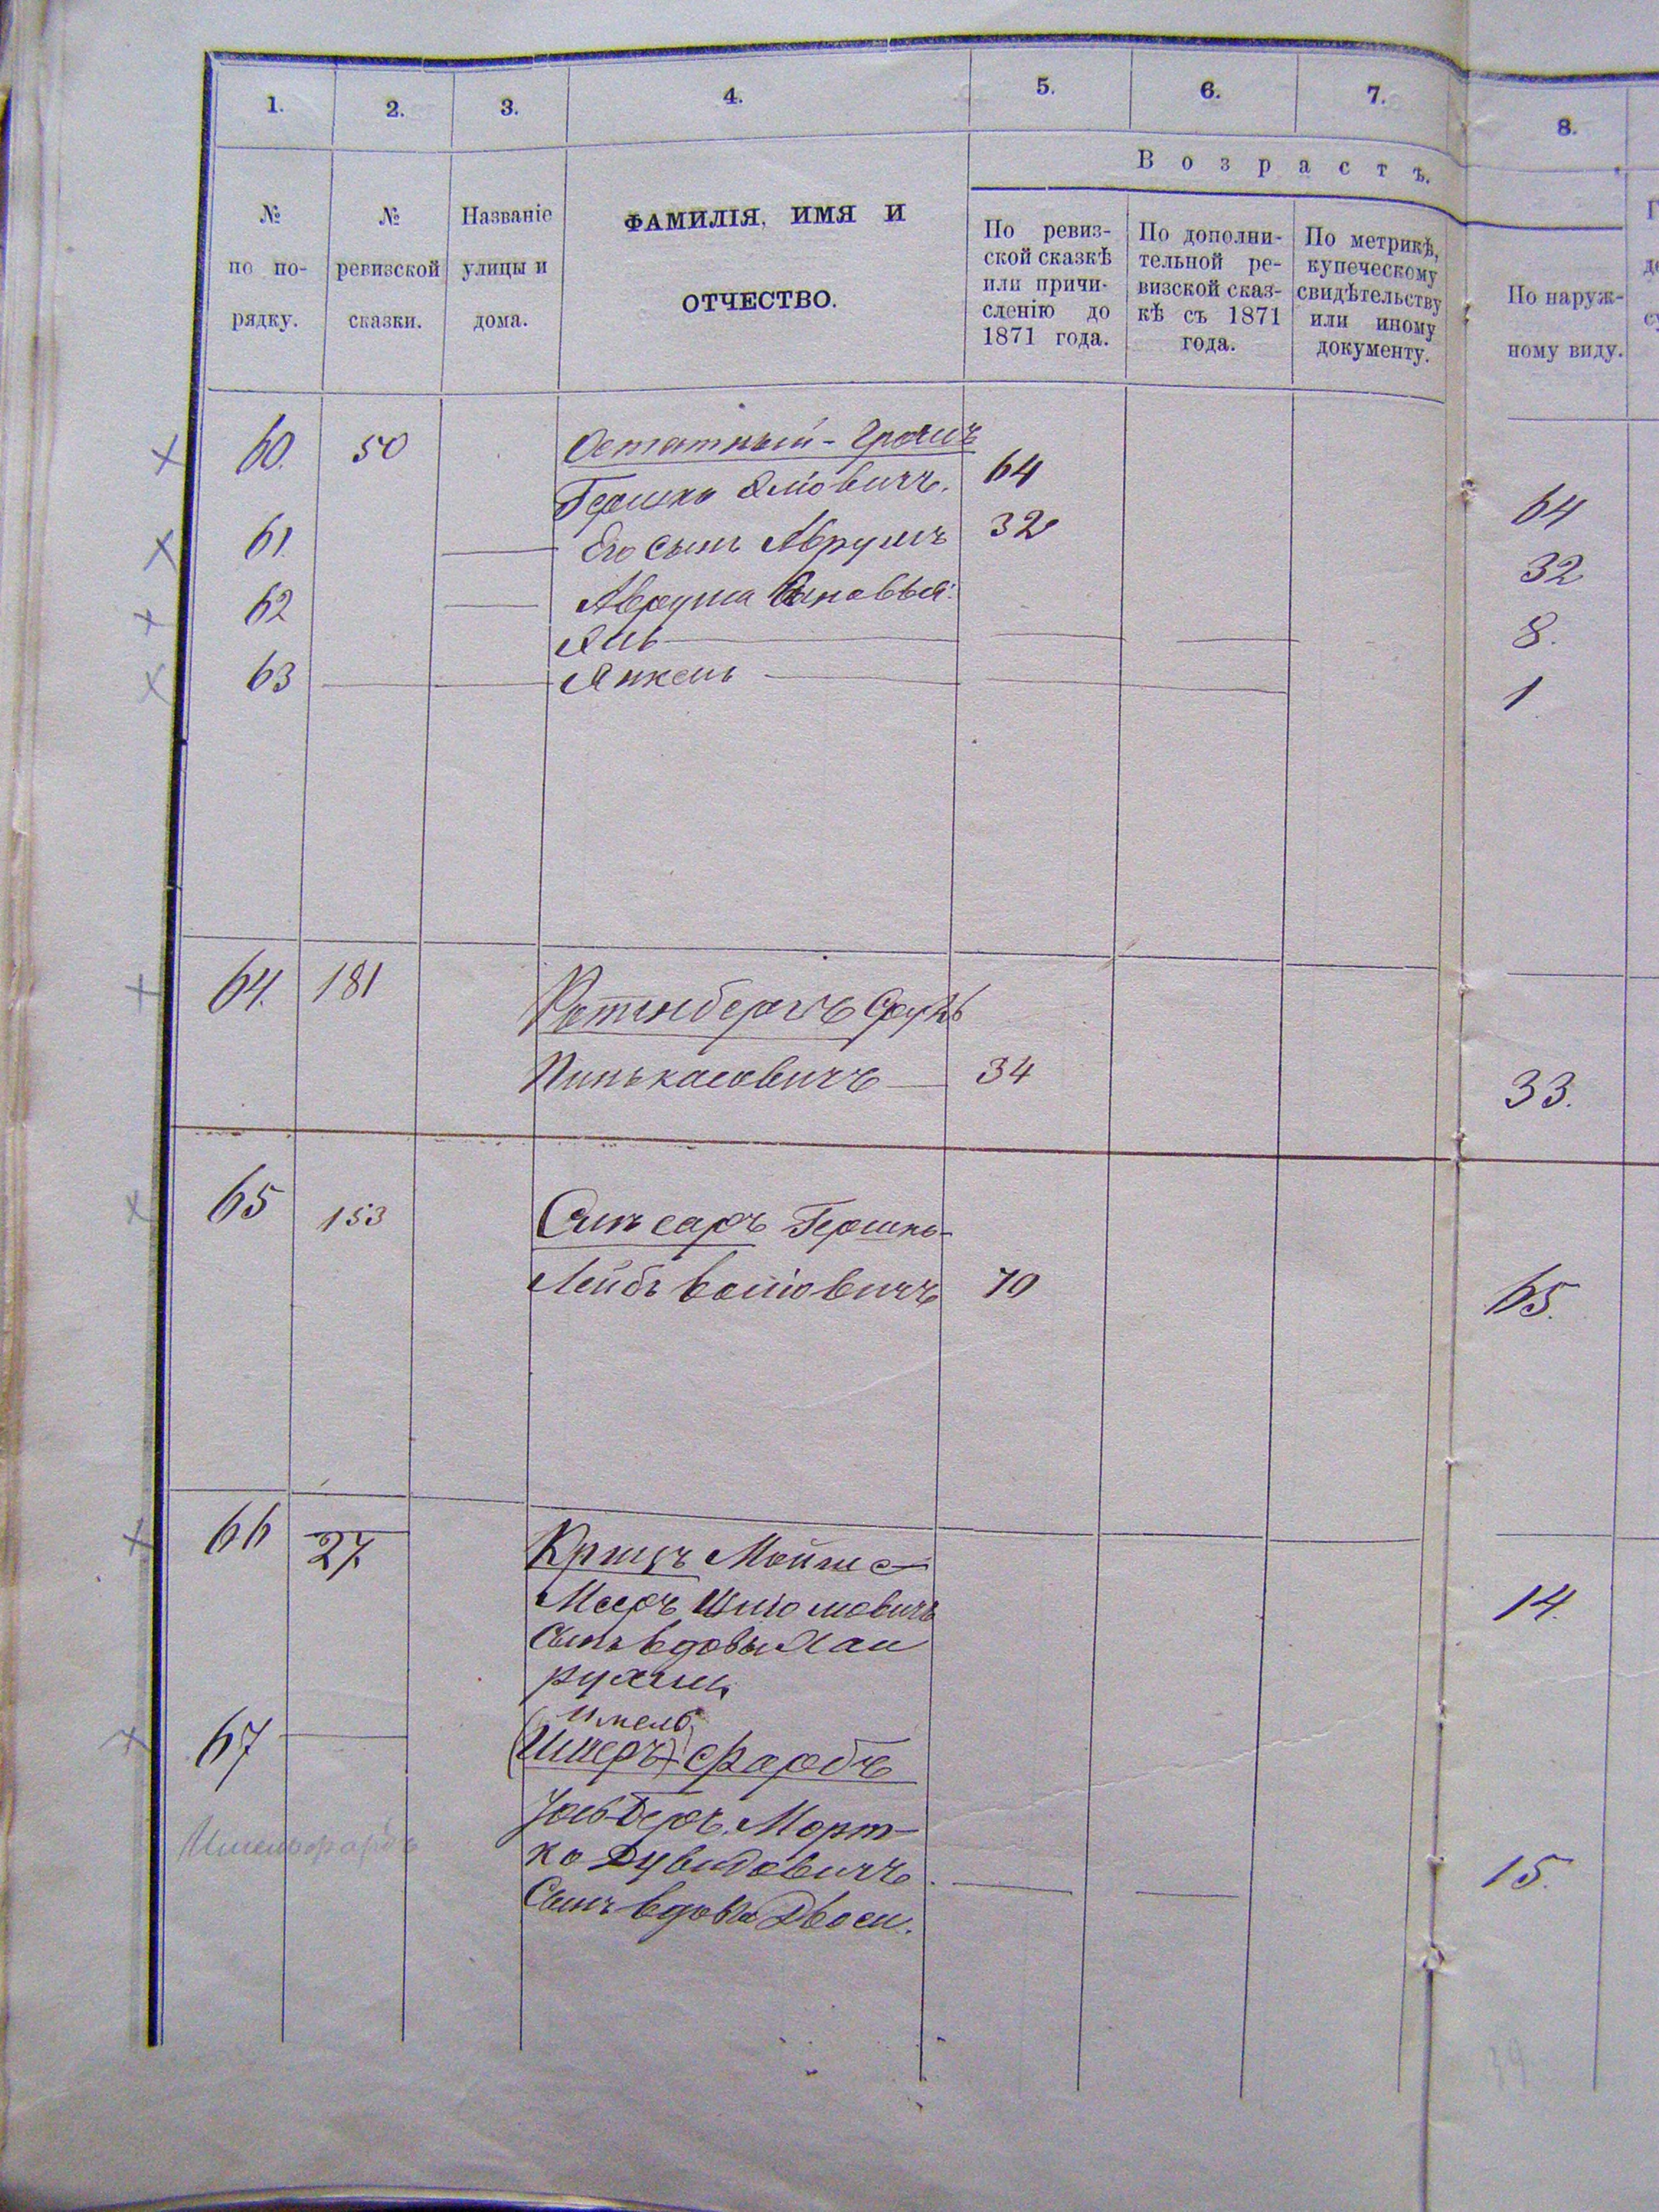 1. 2. 3. 4. 5. 6. 7. 8.
Возрастъ.
№ по по-рядку.
№ ревизской сказки.
Названіе улицы и дома.
ФАМИЛІЯ, ИМЯ И
ОТЧЕСТВО.
По ревиз-
ской сказкѣ
или причи-
сленію до
1871 года.
По дополни-
тельной ре-
визской сказ-
кѣ съ 1871
года.
По метрикѣ,
купеческому
свидѣтельству
или иному
документу.
По наруж-
ному виду.
60. 50 Остатный-Грошъ
Гершко Яліовичъ. 64 64
61. Его сынъ Аврумъ 32 32
62 Аврума Сыновья:
Яль 8.
63 Янкель 1
64. 181 Ротенбергъ Сруль
Пинькасовичъ 34 33.
65 153 Слипсаръ Гершко-
Лейбъ 70 65.
66 27. Крыцъ Мойше
Мееръ Шліомовичъ 14.
Сынъ вдовы Хаи
Рухли
Имель
67 (Имеръ) Фарбъ
Уль-Беръ Морт-
ко Дувидовичъ. 15.
Сынъ вдовы Двоси.
Имельфарбъ
39